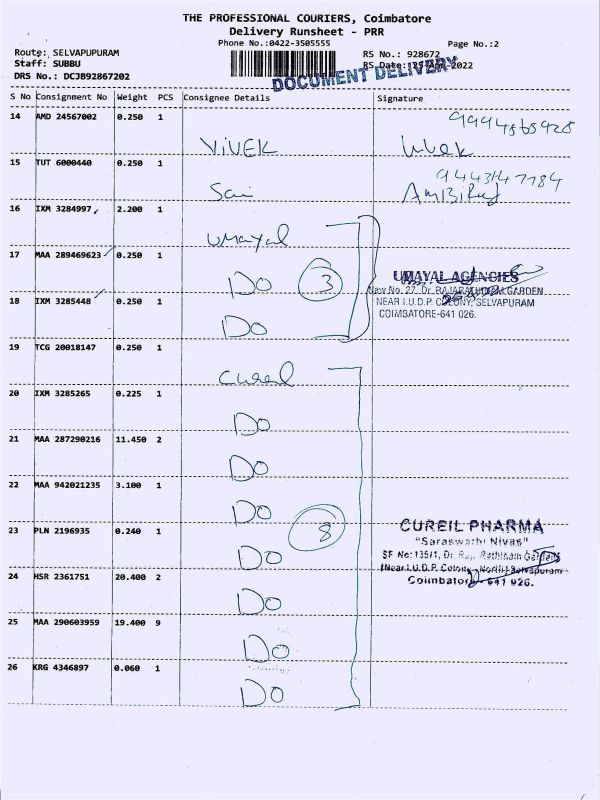 THE PROFESSIONAL COURIERS, Coimbatore
Delivery Runsheet - PRR
Phone No.:0422-3505555
Page No.:2
Route: SELVAPUPURAM
RS No.: 928672
Staff: SUBBU
RS Date: 25-Apr-2022
DRS No.: DCJB92867202
DOCUMENT DELIVERY
S No Consignment No Weight PCS Consignee Details Signature
14 AMD 24567002 0.250 1
VIVEK
15 TUT 6000440 0.250 1
Sai
16 IXM 3284997 2.200 1
Umayal
17 MAA 289469623 0.250 1
DO 3
UMAYAL AGENCIES
New No. 27, Dr. RAJARATHINAM GARDEN
18 IXM 3285448 0.250 1
NEAR I.U.D.P. COLONY, SELVAPURAM
COIMBATORE-641 026.
DO
19 TCG 20018147 0.250 1
Cureil
20 IXM 3285265 0.225 1
DO
21 MAA 287290216 11.450 2
DO
22 MAA 942021235 3.100 1
DO
8
CUREIL PHARMA
23 PLN 2196935 0.240 1
"Saraswathi Nivas"
SF No:135/1, Dr. Raja Rathinam Gardens
DO
(Near I.U.D.P. Colony North) Selvapuram
24 HSR 2361751 20.400 2
Coimbatore - 641 026.
DO
25 MAA 290603959 19.400 9
DO
26 KRG 4346897 0.060 1
DO